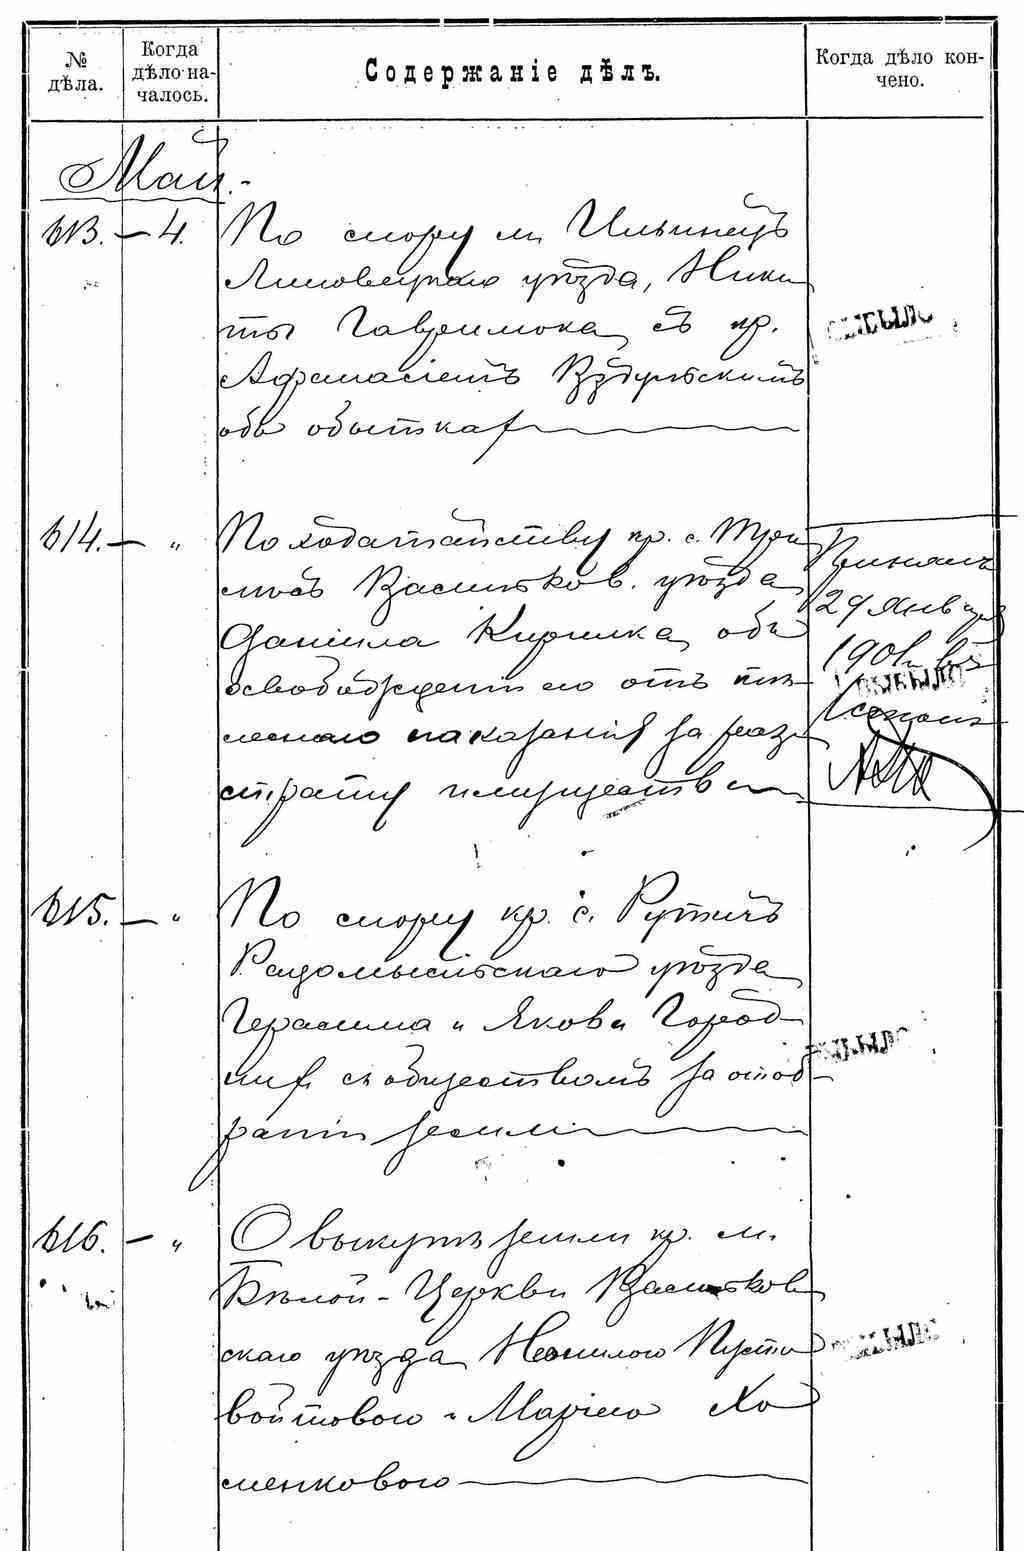 № дѣла.
Когда дѣло на-
чалось.
Содержаніе дѣлъ.
Когда дѣло кон-
чено.
Май.
613. — 4. По спору м. Ильинецъ
Липовецкаго уѣзда, Ники
ты Гавримока съ кр.
Афанасіемъ
объ обыткахъ
ВЫБЫЛО
614. — „ По ходатайству кр. с.
Васильков. уѣзда
Даніила Кирилка объ
освобожденіи его отъ тѣ-
леснаго наказанія за раз-
страту имущества
Принялъ
29 Января
1901 г. въ
ВЫБЫЛО
615. — „ По спору кр. с. Рутичъ
Радомысльскаго уѣзда
Герасима и Якова Город-
нихъ съ обществомъ за отоб-
раніи земли
ВЫБЫЛО
616. — „ О выкупѣ земли кр. м.
Бѣлой-Церкви Васильков
скаго уѣзда Неонилою Пусто
войтовою и Маріею Хо
менковою
ВЫБЫЛО